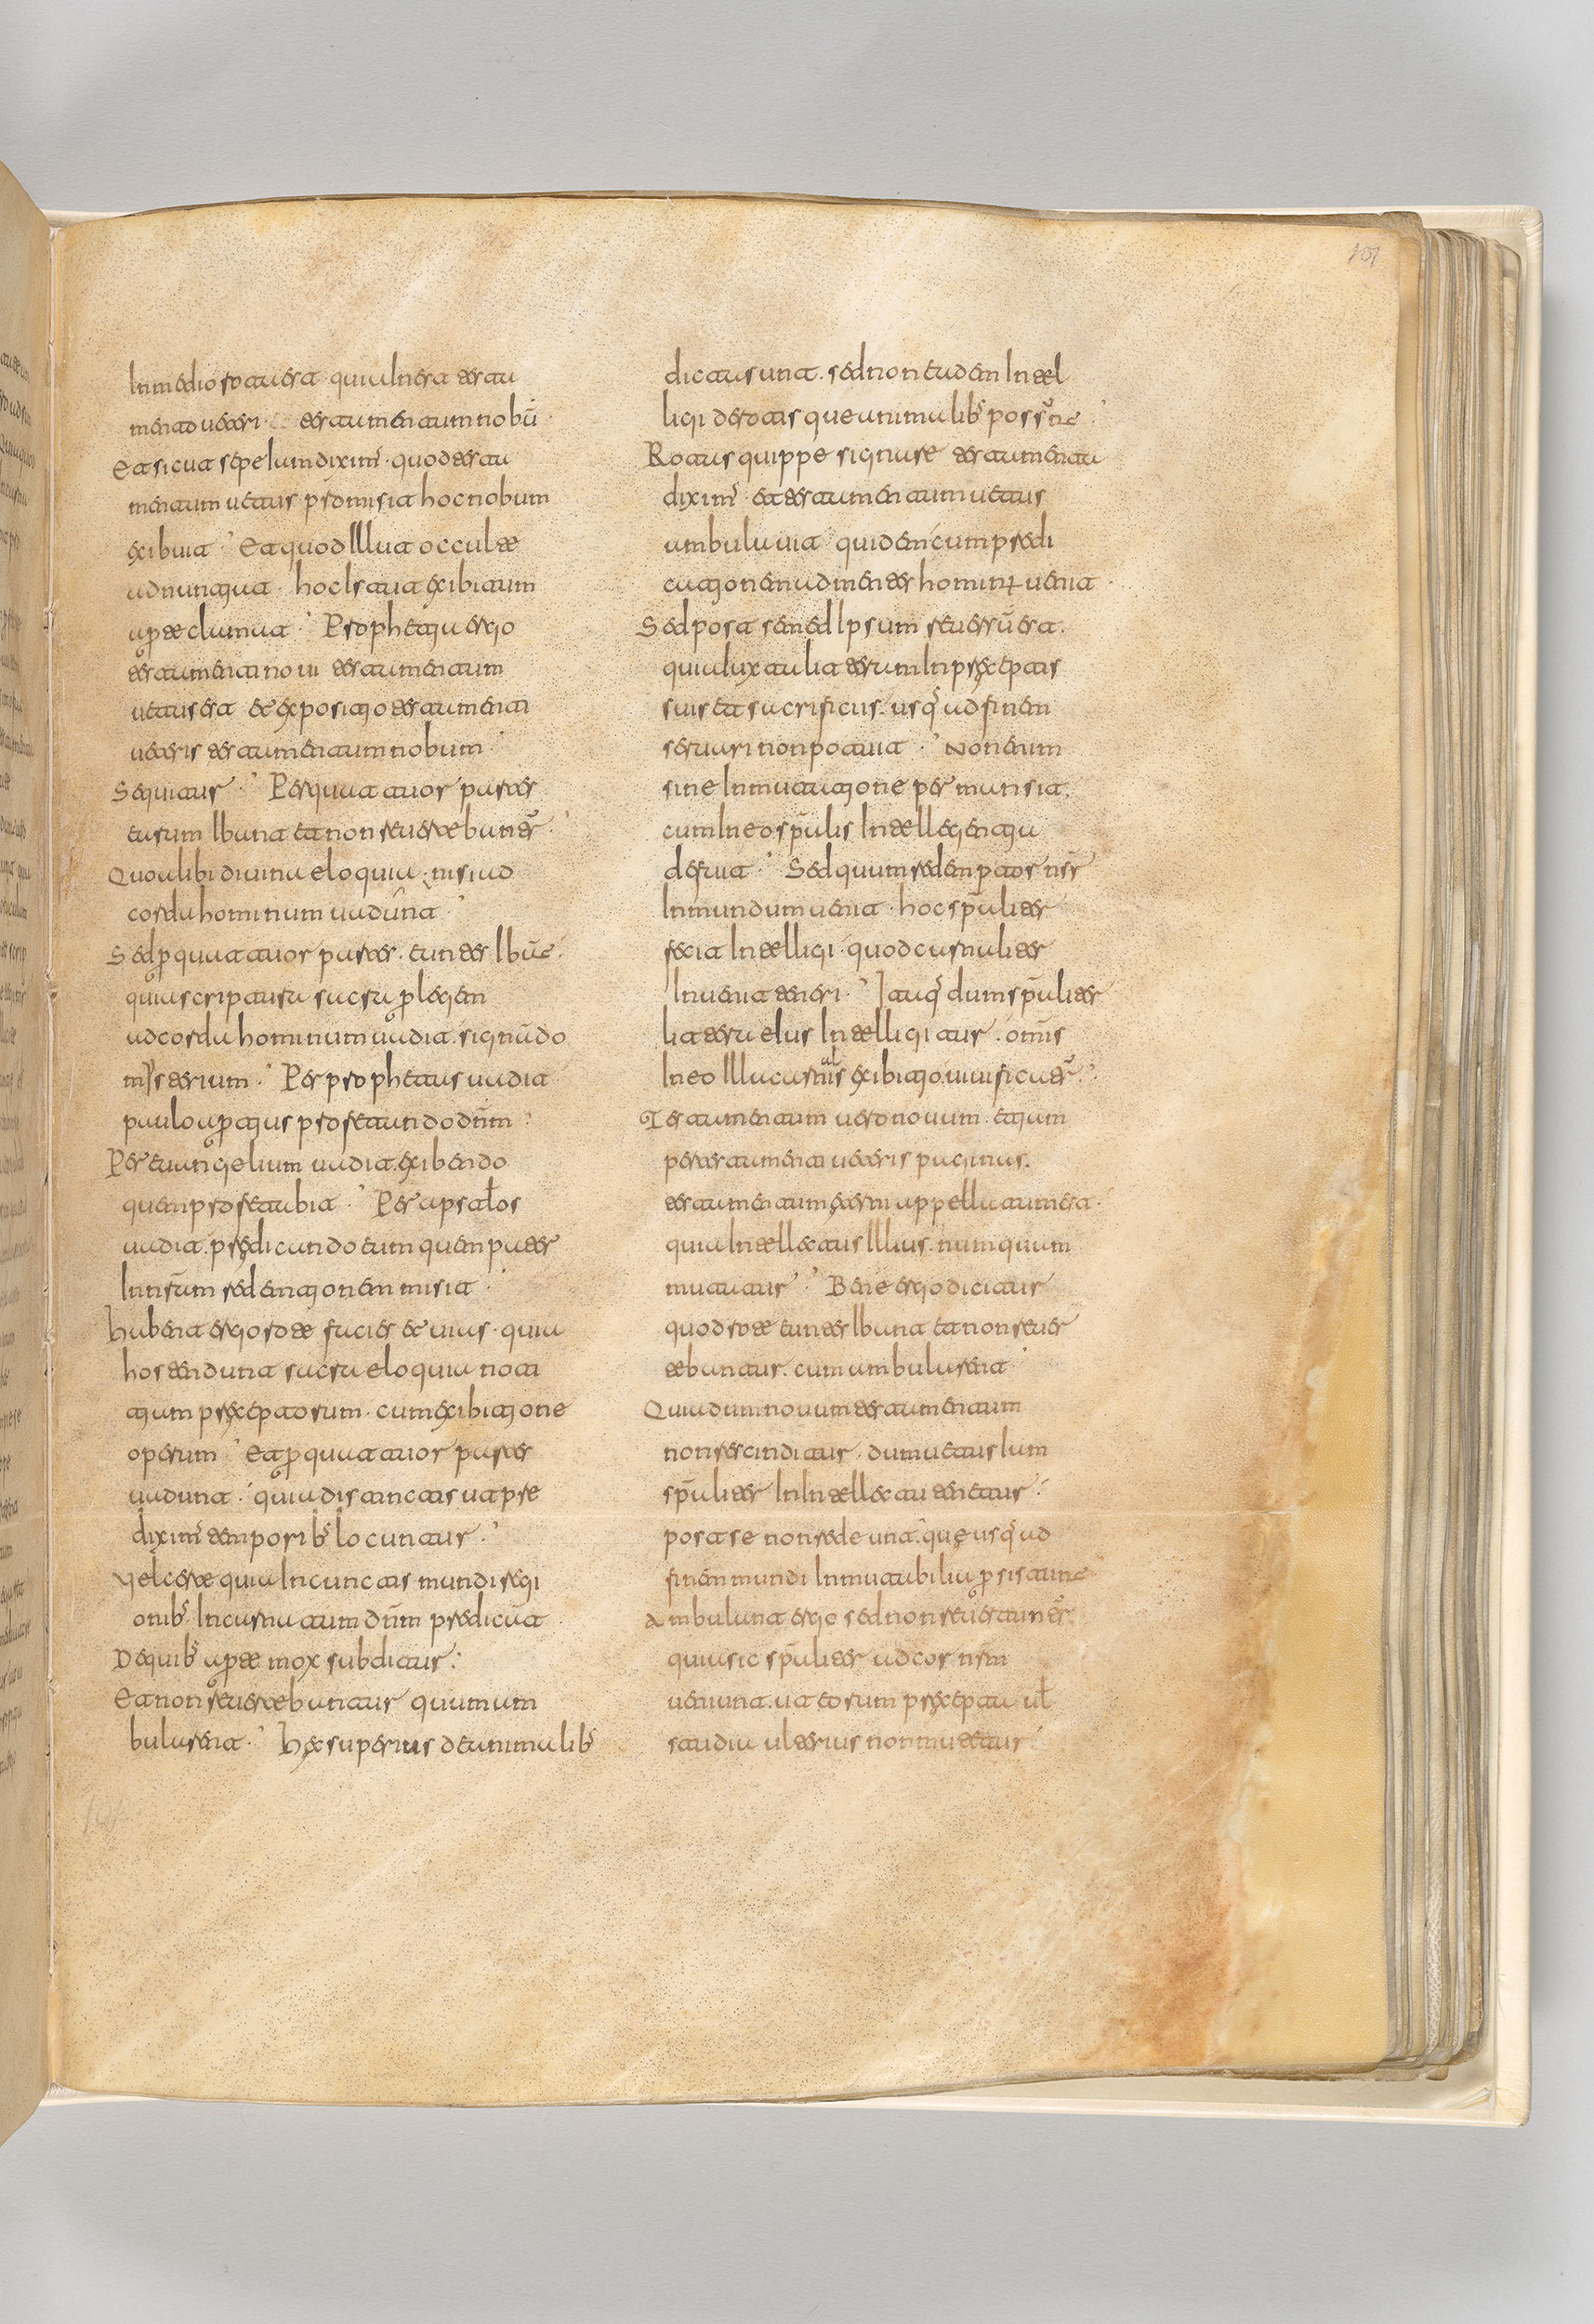 In medio rota erat quia inerat testa
mento ueteri . testamentum nobū
Et sicut sepe iam diximꝰ . quod testa
mentum uetus promisit hoc nobum
exibuit . Et quod Illut occulte
adnuntiat . hoc Istut exibitum
aperte clamat . Prophetia ergo
testamenti noui testamentum
uetus est et expositio testamenti
ueteris testamentum nobum .
Sequitur . Per quattuor partes
earum Ibant et non reuertebantr̄ .
diuina eloquia . nisi ad
corda hominum uadunt .
Sed ꝑ quattuor partes . euntes Ibāt .
quia scriptura sacra ꝑ legem
ad corda hominum uadit . signādo
misterium . Per prophetas uadit
paulo aꝑtius profetando dn̄m .
Per euangelium uadit . exibendo
quem profetabit . Per apsłos
uadit . predicando eum quem pater
In nr̄am redemtionem misit .
Habent ergo rote facies et uias . quia
hostendunt sacra eloquia noti
tium preceptorum . cum exibitione
operum . Et ꝑ quattuor partes
uadunt . quia distinctis ut pre
diximꝰ temporibꝰ locuntur .
Uel certe quia In cunctis mundi regi
onibꝰ Incarnatum dn̄m predicāt
De quibꝰ aperte mox subditur .
Et non reuertebuntur quum am
bularent . Hec superius de animalibꝰ
dicta sunt . sed non eadem Intel
ligi de rotis que animalibꝰ possūt .
Rotas quippe signare testamenta
diximꝰ . et testamentum uetus
ambulauit quidem cum predi
catjonem ad mentes hominū uenit .
Sed post semed Ipsum reuersū est .
quia luxta litterum In preceptis
suis et sacrificiis . usqꝫ ad finem
seruari non potuit . Non enim
sine Inmutatjone permansit .
cum In eo sp̄alis Intellegentja
defuit . Sed quum redemptor nsr̄
In mundum uenit . hoc sp̄aliter
fecit Intelligi . quod carnaliter
Inuenit teneri . Itaqꝫ dum sp̄aliter
littera eius Intelligitur . omīs
In eo Illa carnal̄is exibitjo . uiuificatr̄ .
Testamentum uero nouum . etjam
per testamenti ueteris paginas .
testamentum eternu appellatum est .
quia Intellectus Illius . numquam
mutatur . Bene ergo dicitur
quod rote euntes Ibant et non reuer
tebantur . cum ambularent .
Quia dum nouum testamentum
non rescinditur . dum uetus Iam
sp̄aliter In Intellectu tenetur .
post se non redeunt . que usqꝫ ad
finem mundi Inmutabilia ꝑsistunt
Ambulant ergo sed non reuertuntr̄ .
quia sic sp̄aliter ad cor nsm̄
ueniunt . ut eorum precepta ul̄
studia ulterius non mutetur .
101